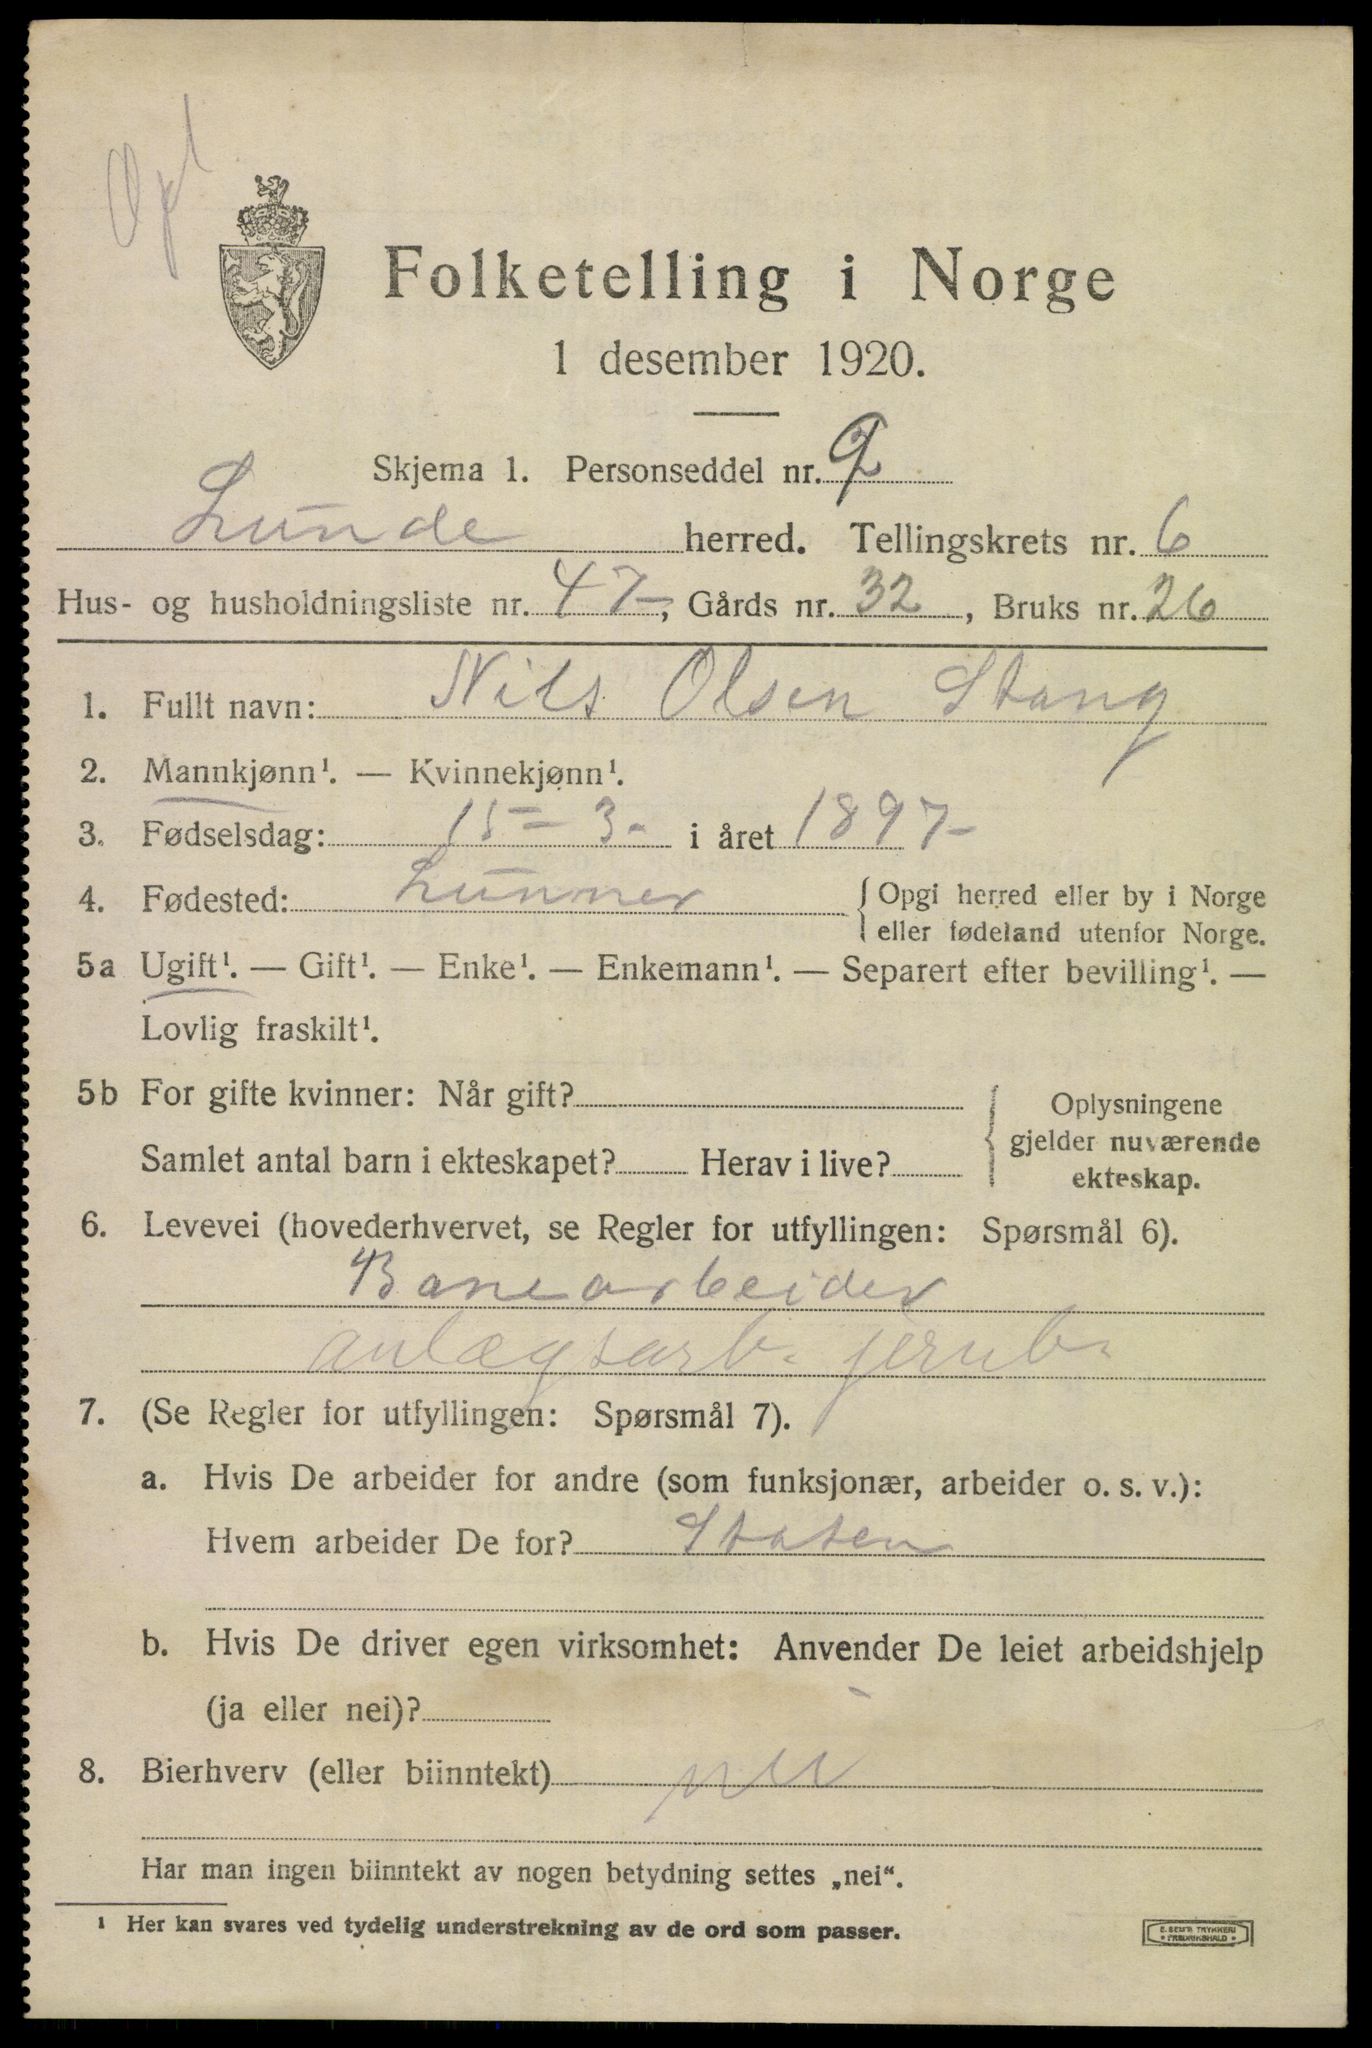 Opl
Folketelling i Norge
1 desember 1920.
Skjema 1. Personseddel nr. 2
Lunde herred. Tellingskrets nr. 6
Hus- og husholdningsliste nr. 47-, Gårds nr. 32, Bruks nr. 26
1. Fullt navn: Nils Olsen Stang
2. Mannkjønn¹. — Kvinnekjønn¹.
3. Fødselsdag: 15 - 3- i året 1897-
4. Fødested: Lunner { Opgi herred eller by i Norge
eller fødeland utenfor Norge.
5a Ugift¹. — Gift¹. — Enke¹. — Enkemann¹. — Separert efter bevilling¹. —
Lovlig fraskilt¹.
5b For gifte kvinner: Når gift?
Samlet antal barn i ekteskapet? Herav i live?
{ Oplysningene
gjelder nuværende
ekteskap.
6. Levevei (hovederhvervet, se Regler for utfyllingen: Spørsmål 6).
Banearbeider
anlægsarb. jernb.
7. (Se Regler for utfyllingen: Spørsmål 7).
a. Hvis De arbeider for andre (som funksjonær, arbeider o. s. v.):
Hvem arbeider De for? Staten
b. Hvis De driver egen virksomhet: Anvender De leiet arbeidshjelp
(ja eller nei)?
8. Bierhverv (eller biinntekt) nei
Har man ingen biinntekt av nogen betydning settes „nei“.
¹ Her kan svares ved tydelig understrekning av de ord som passer.
E. SEM'S TRYKKERI
• FREDRIKSHALD •